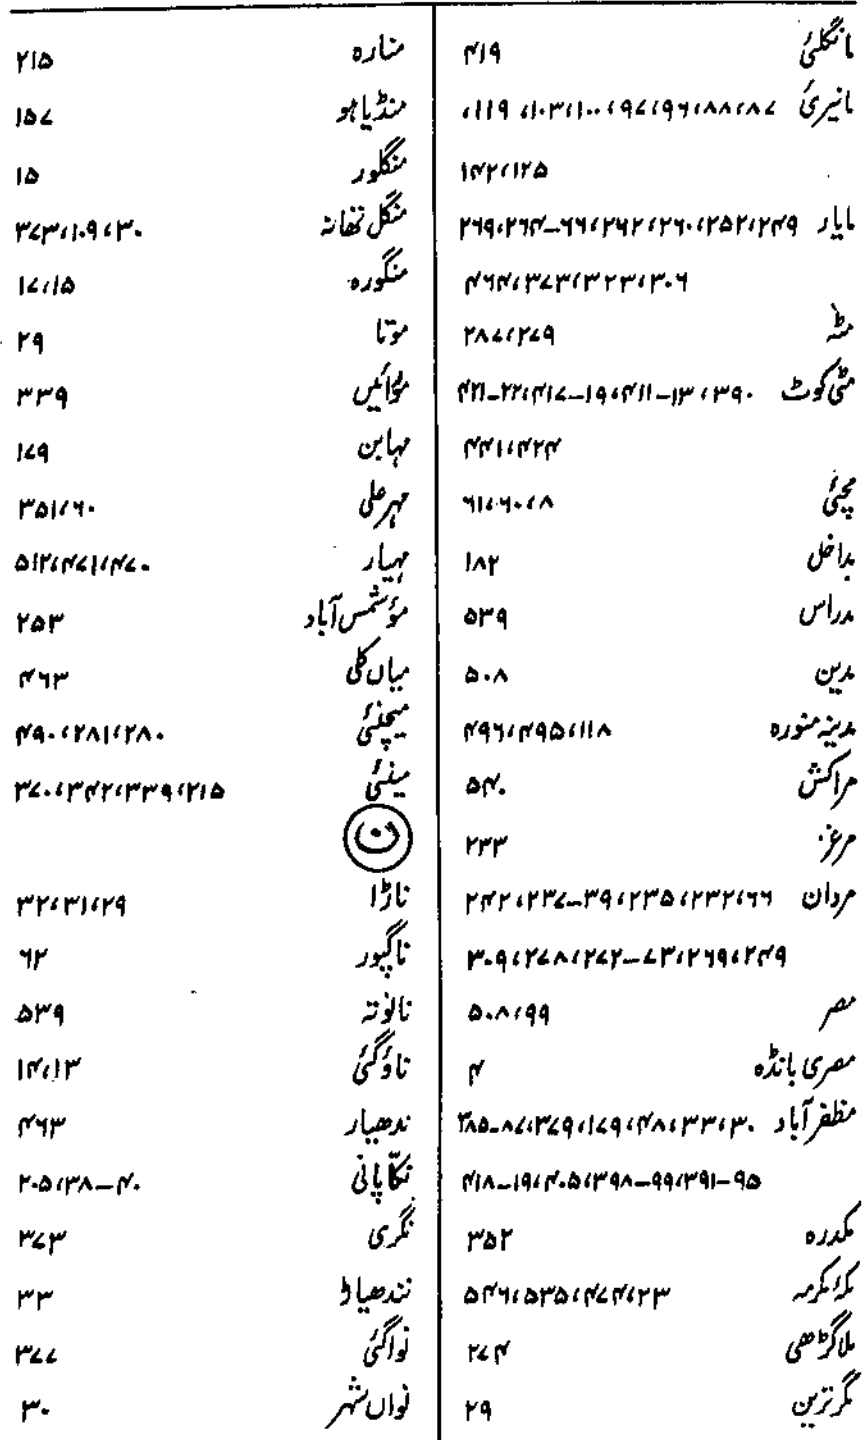 مانگلئی ۴۱۹
مانیرئی ۸۷،۸۸،۹۶،۹۷،۱۰۰،۱۰۳، ۱۱۹،
۱۲۵،۱۴۲
مایار ۲۴۹،۲۵۲،۲۶۰،۲۶۲،۶۶-۲۶۴،۲۶۹
۳۰۶،۳۲۳،۳۷۳،۴۶۴
مٹہ ۲۷۹،۲۸۷
مٹی کوٹ ۳۹۰،۱۳-۴۱۱،۱۹-۴۱۷،۲۲-۴۲۱
۴۲۴،۴۴۱
مچئی ۸،۶۰،۶۱
مداخل ۱۸۲
مدراس ۵۳۹
مدین ۵۰۸
مدینہ منورہ ۱۱۸،۴۹۵،۴۹۶
مراکش ۵۴۰
مرغز ۲۳۳
مردان ۶۶،۲۳۲،۲۳۵،۳۹-۲۳۷،۲۴۲
۲۴۹،۲۶۹،۷۳-۲۷۲،۲۷۸،۳۰۹
مصر ۹۹،۵۰۸
مصری بانڈہ ۴
مظفرآباد ۳۰،۳۳،۴۸،۱۷۹،۳۷۹،۸۷-۳۸۵
۹۵-۳۹۱،۹۹-۳۹۸،۴۰۵،۱۹-۴۱۸
مکدرہ ۳۵۲
مکہ مکرمہ ۲۳،۴۷۴،۵۳۵،۵۴۶
ملاگڑھی ۲۷۴
مگرترین ۲۹
منارہ ۲۱۵
منڈیاہو ۱۵۷
منگلور ۱۵
منگل تھانہ ۳۰،۱۰۹،۳۷۳
منگورہ ۱۵،۱۷
موتا ۲۹
مؤائیں ۳۳۹
مہابن ۱۷۹
مہر علی ۶۰،۳۵۱
مہیار ۴۷۰،۴۷۱،۵۱۲
مؤشمس آباد ۲۵۳
میاں کلی ۴۶۳
میچنئی ۲۸۰،۲۸۱،۴۹۰
مینئی ۲۱۵،۳۳۹،۳۴۲،۳۷۰
ن
ناڑا ۲۹،۳۱،۳۲
ناگپور ۶۲
نانوتہ ۵۳۹
ناؤگئی ۱۳،۱۴
ندھیار ۴۶۳
نکّاپانی ۴۰-۳۸،۲۰۵
نگری ۳۷۳
نندھیاڑ ۳۳
نواگئی ۳۷۷
نواں شہر ۳۰